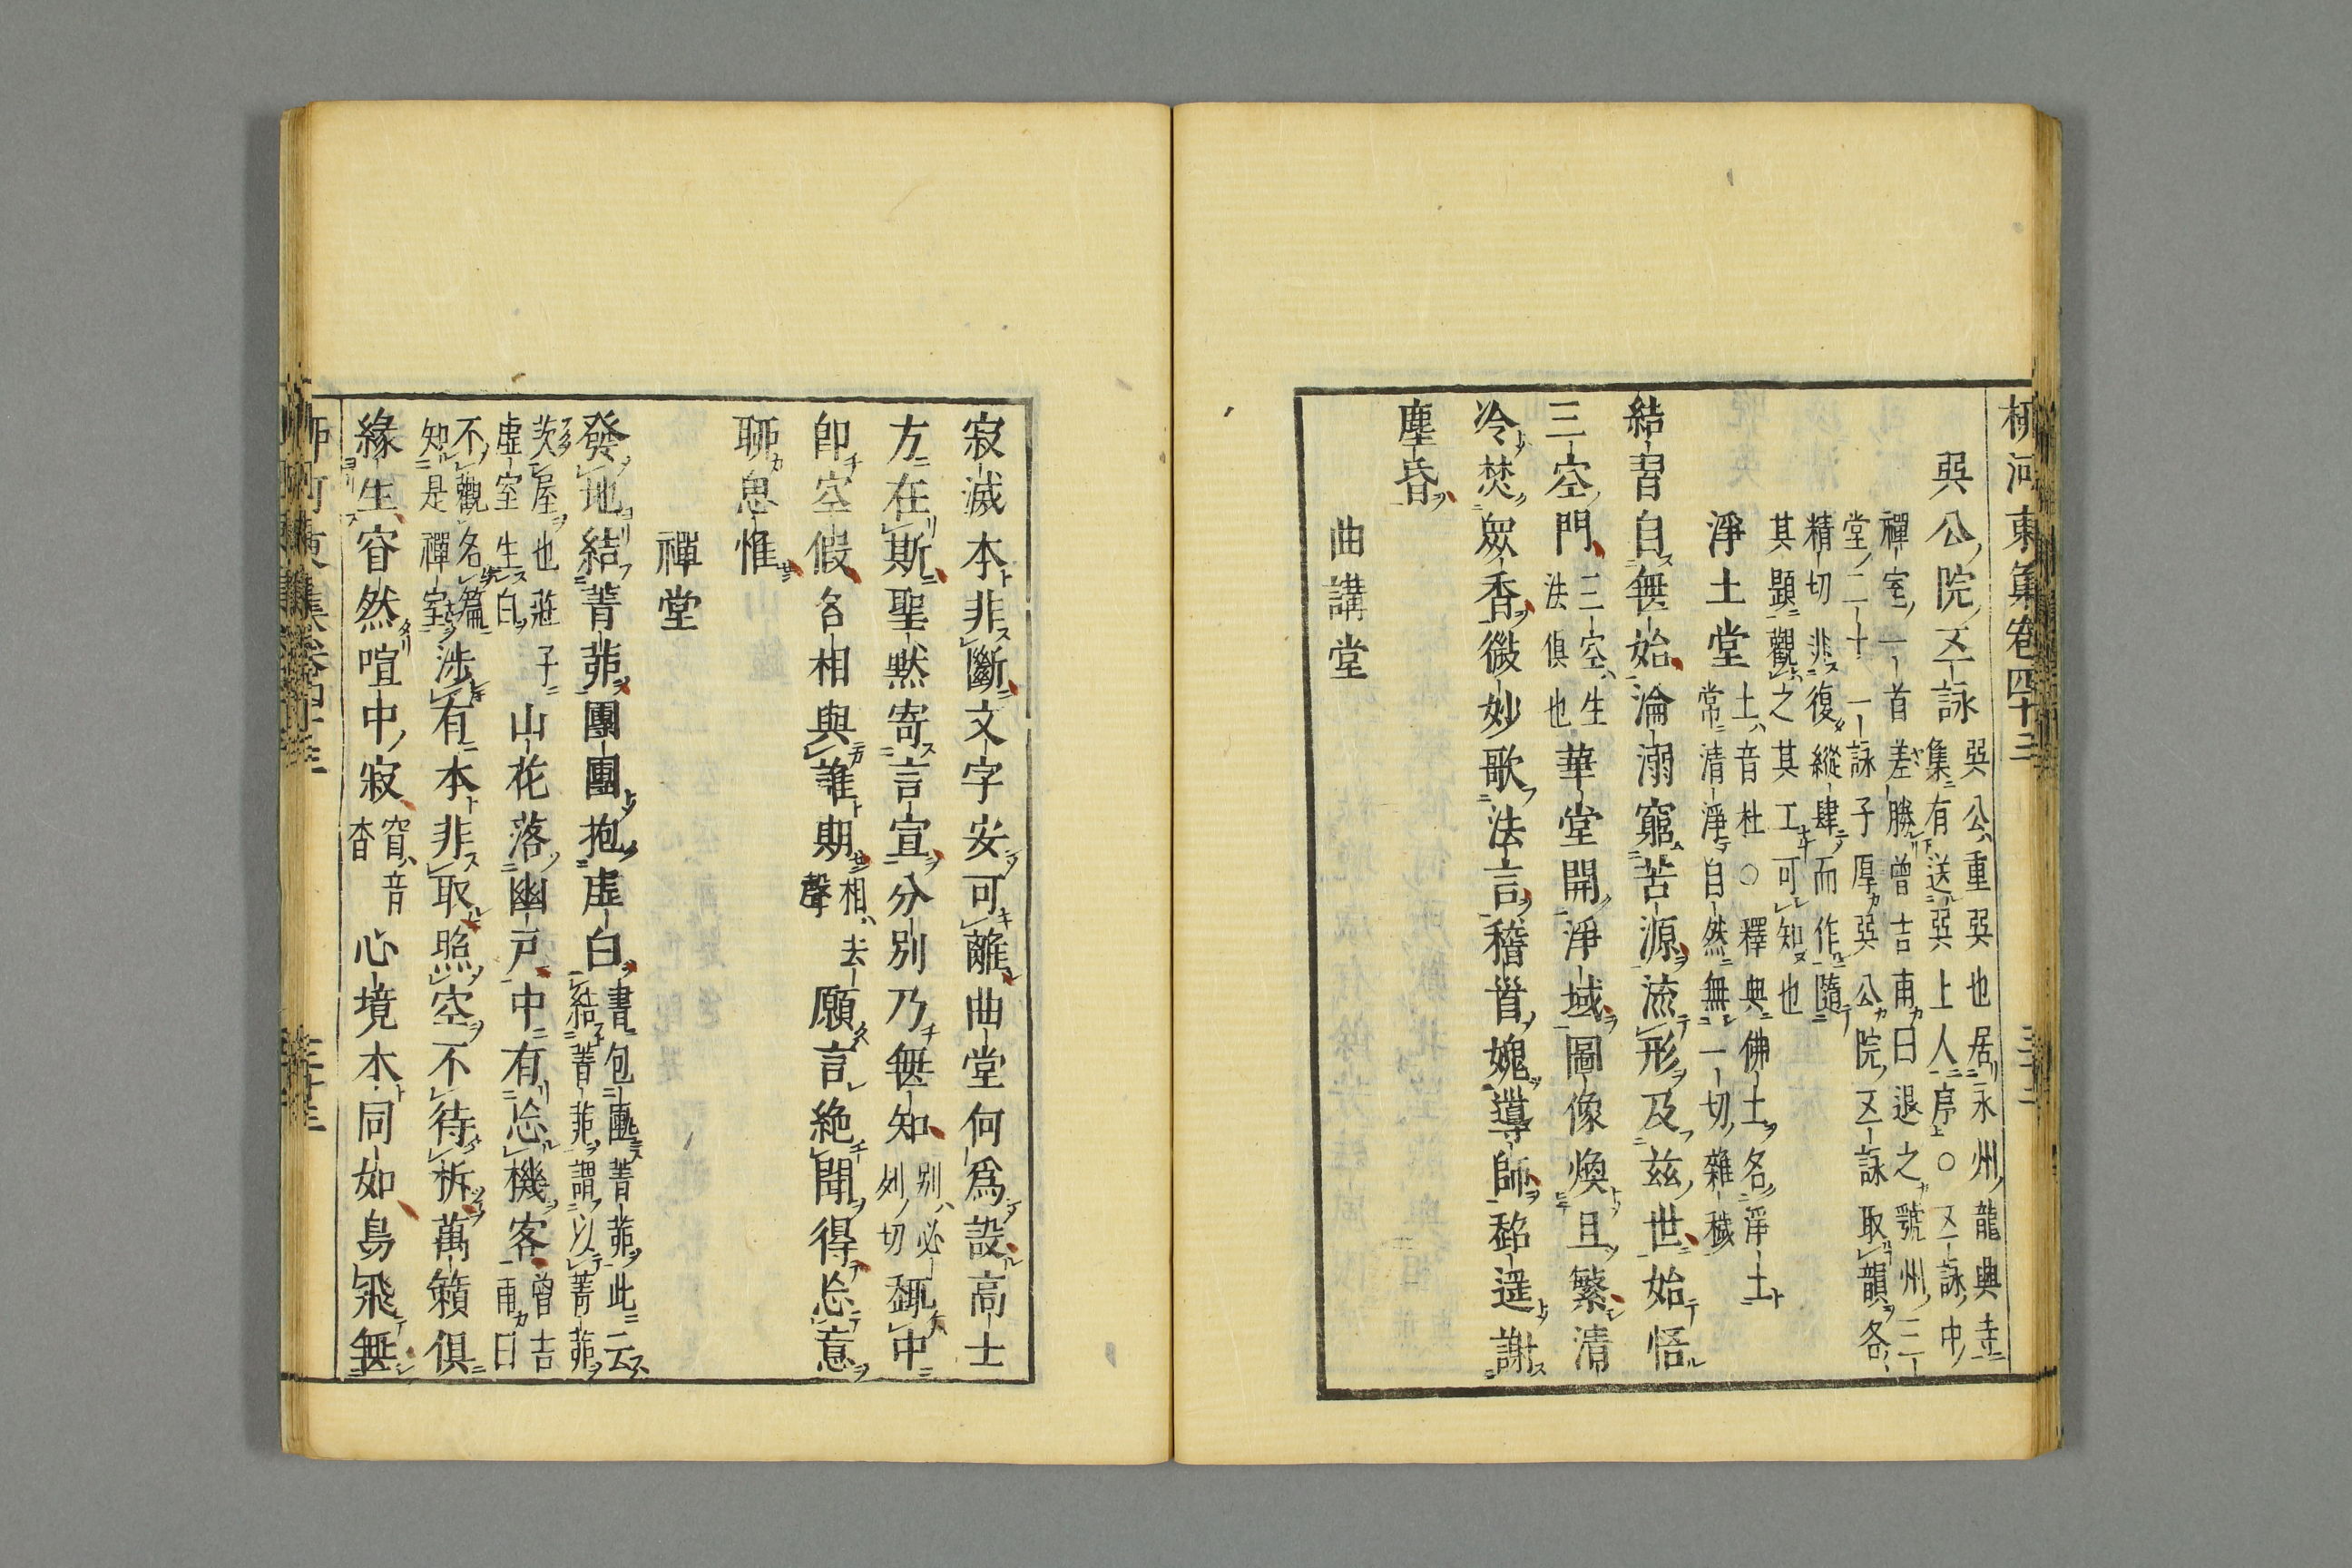 柳河東集卷四十三
巽公院五詠
巽公重巽也居永州龍興圭
集有送巽上人序○五詠中
禪室一首差勝曾吉甫曰退之虢州三
堂二十一詠子厚巽公院五詠取韻各
精切非復縱肆而作隨
其題觀之其工可知也
淨土堂
土音杜○釋典佛土名淨土
常清淨自然無一切雜穢
結習自無始淪溺窮苦源流形及茲世始悟
三空門
三空生
法俱也
華堂開淨域圖像煥且繁清
冷焚眾香微妙歌法言稽首媿導師超遙謝
塵昏
曲講堂
寂滅本非斷文字安可離曲堂何爲設高士
方在斯聖默寄言宣分別乃無知
別必
列切
趣中
卽空假名相與誰期
相去
聲
願言絕聞得忘意
聊思惟
禪堂
發地結菁茆團團抱虛白
書包匭菁茆此云
結菁茆謂以菁茆
茨屋也莊子
虛室生白
山花落幽戶中有忘機客
曾吉
甫曰
不觀名篇
知是禪室
涉有本非取照空不待析萬籟俱
緣生窅然喧中寂
窅音
杳
心境本同如鳥飛無